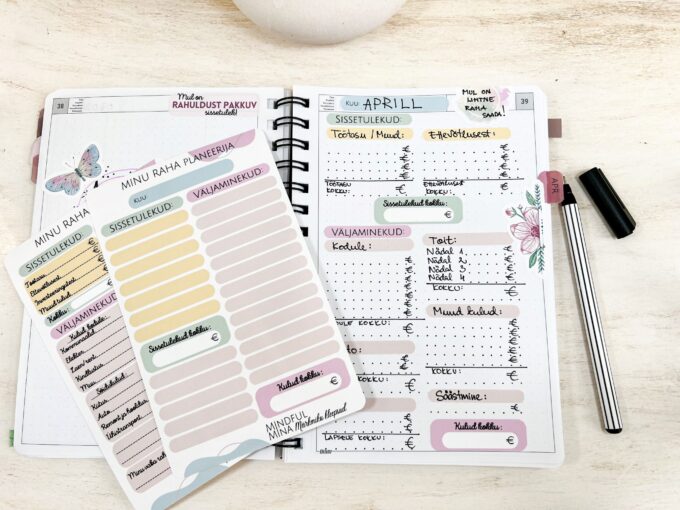 38
Mul on
RAHULDUST PAKKUV
sissetulek!
MINU RAHA
SISSETULEKUD:
Töötasu
Ettevõtlusest
Investeeringutest
Muud tulud
Kokku:
VÄLJAMINEKUD:
Kulud kodule:
Kommunaalid
Elekter
Laen/rent
Kindlustus
Muu
Sõidukulud:
Kütus
Auto
Remont ja hooldus
Ühistransport
MINU RAHA PLANEERIJA
KUU
SISSETULEKUD:
VÄLJAMINEKUD:
Sissetulekud kokku:
€
Kulud kokku:
€
MINDFUL
MINA
39
KUU: APRILL
MUL ON
LIHTNE
RAHA
SAADA!
SISSETULEKUD:
Töötasu / Muud:
Ettevõtlusest:
TÖÖTASU
KOKKU:
€
ETTEVÕTLUSEST
KOKKU:
€
Sissetulekud kokku:
€
APR
VÄLJAMINEKUD:
Kodule:
Toit:
Nädal 1
Nädal 2
Nädal 3
Nädal 4
KOKKU:
€
KOKKU:
€
Muud kulud:
KOKKU:
€
KOKKU:
€
Säästmine:
€
Kulud kokku:
€
LAPSELE KOKKU:
€